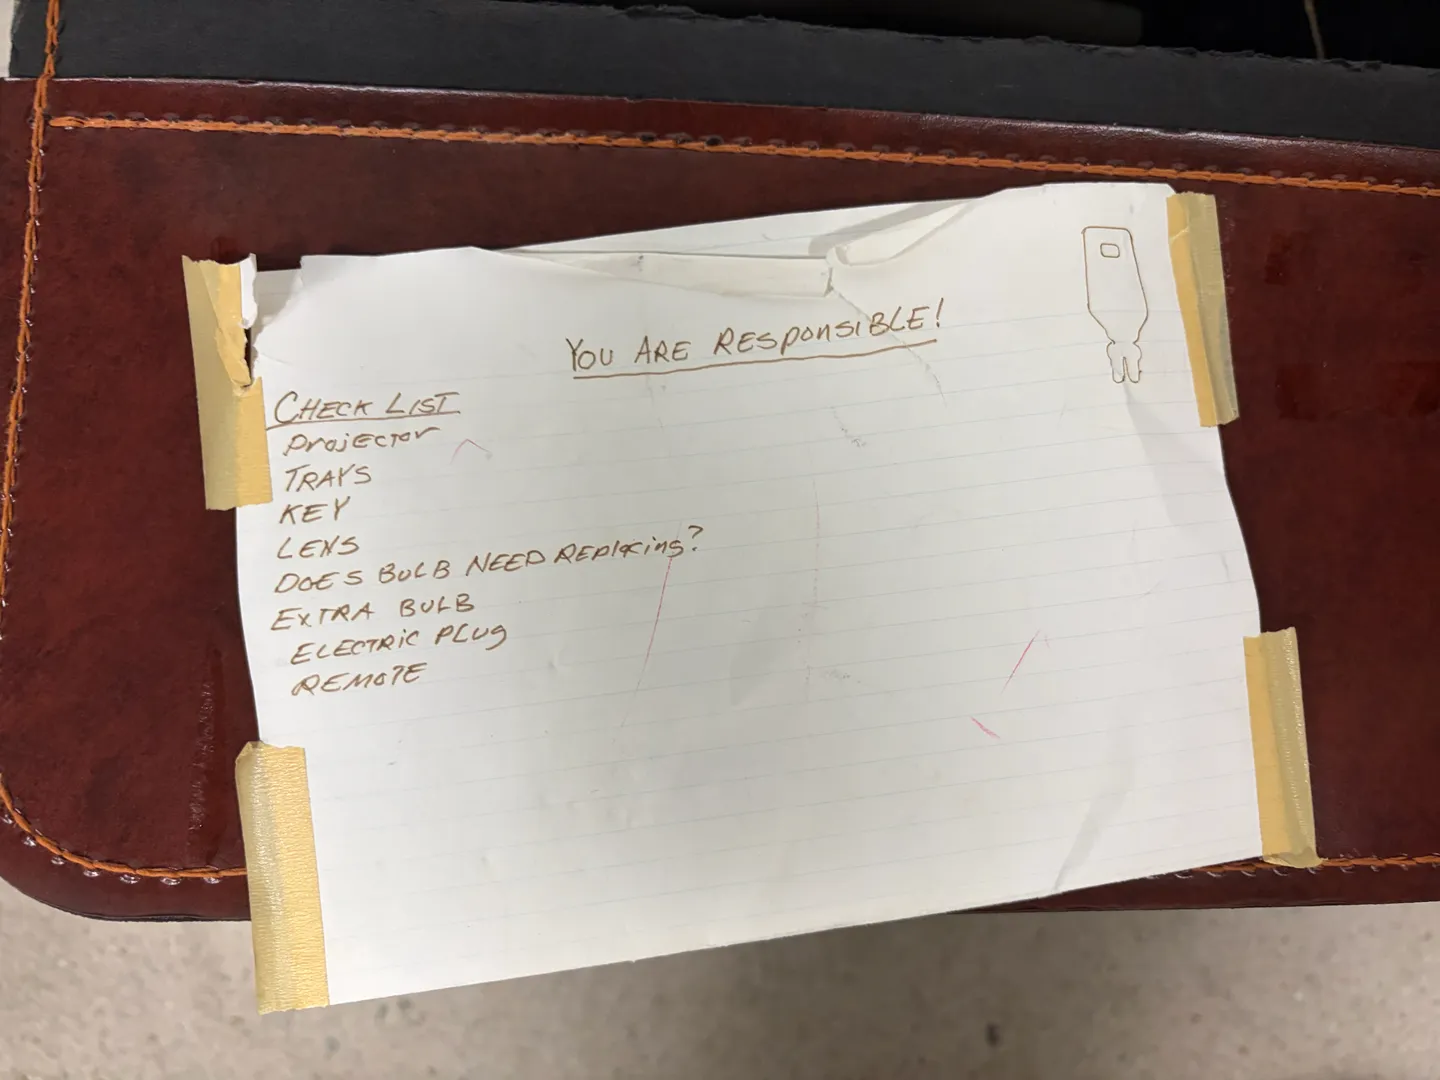 YOU ARE RESPONSIBLE!
CHECK LIST
Projector
TRAYS
KEY
LENS
DOES BULB NEED REPlacing?
EXTRA BULB
ELECTRIC PLUg
REMOTE